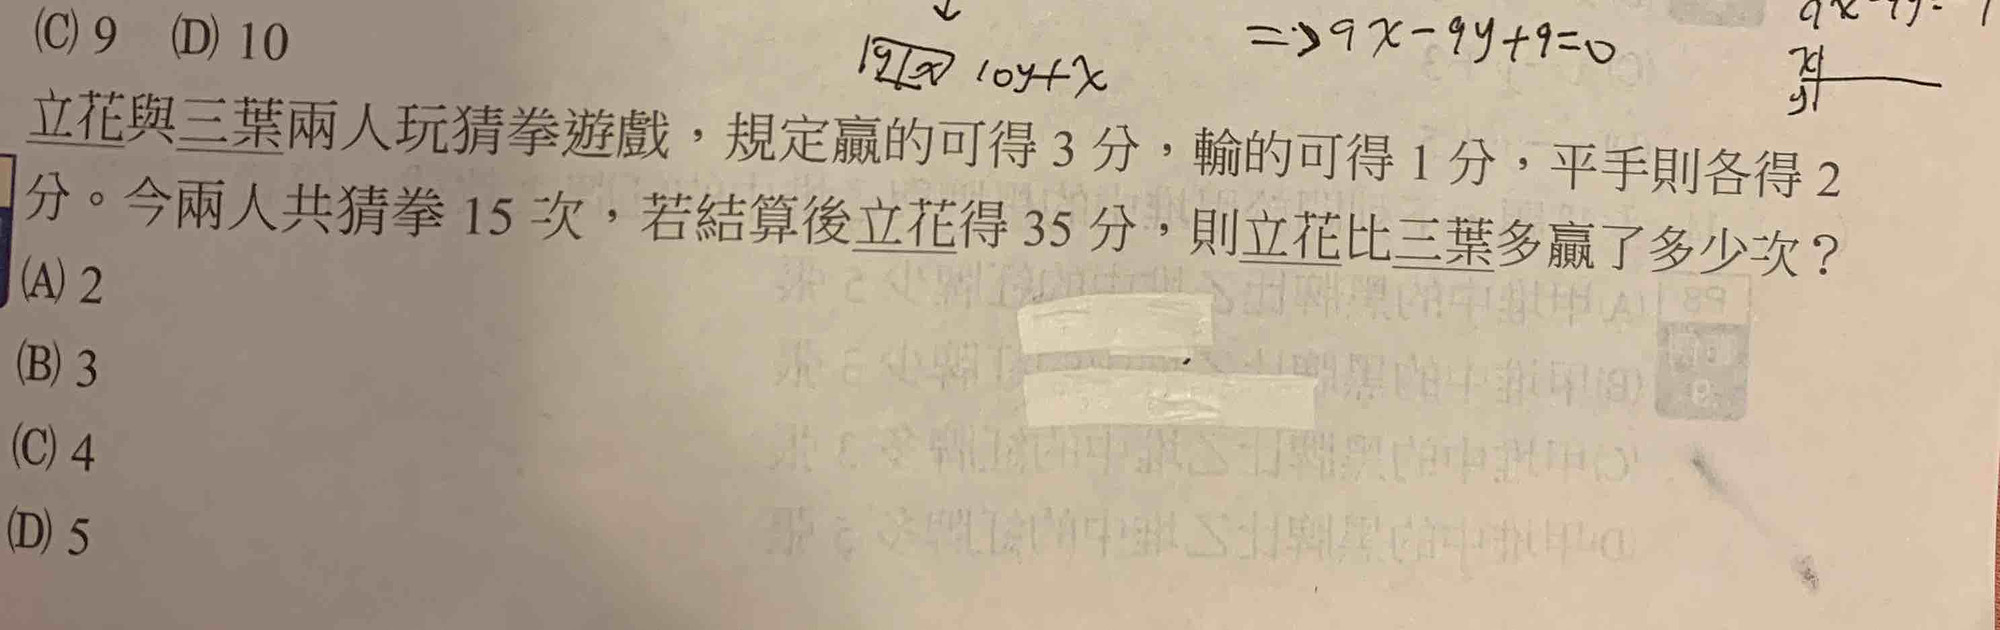 (C) 9 (D) 10
10y+x
9x-9y+9=0
立花與三葉兩人玩猜拳遊戲，規定贏的可得 3 分，輸的可得 1 分，平手則各得 2
分。今兩人共猜拳 15 次，若結算後立花得 35 分，則立花比三葉多贏了多少次？
(A) 2
(B) 3
(C) 4
(D) 5